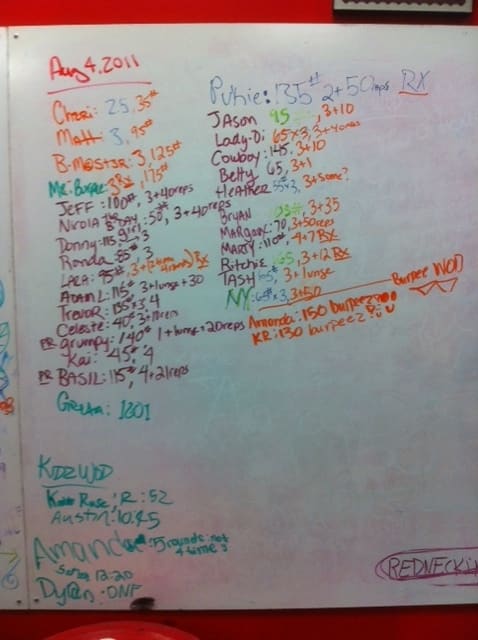 Aug 4, 2011
Cheri: 2.5, 35#
Matt: 3, 95#
B-Master: 3, 125#
Mr. Burpee: 3 Rx, 175#
JEFF: 100#, 3+40reps
Nicola the B-DAY girl: 50#, 3+40reps
Donny: 115, 3
Ronda: 85#, 3
LARA: 95#, 3+ Rx
ADAM L: 115#, 3+lunge+30
TREVOR: 135#, 3.4
Celeste: 40#, 3+11reps
PR grumpy: 140#, 1+lunge+20reps
Kai: 45#, 4
PR BASIL: 115#, 4+21reps
Greta: 1801
Pukie: 135# 2+50reps RX
JASon 95#, 3+10
Lady-D: 65#x3, 3+40reps
Cowboy: 145, 3+10
Betty 65, 3+1
HEATHER 55#x3, 3+some?
BRYAN 95#, 3+35
MARGOW: 70, 3+50reps
MARTY: 110#, 4+7 Rx
Ritchie 165, 3+12 Rx
TASH 65#, 3+lunge
NY: 65#x3, 3+50
Burpee WOD
Amanda: 150 burpeez
KR: 130 burpeez
KIDZ WOD
Rose: 12:52
Austin: 10:45
Amanda: 5 rounds: not 4 times
12:20
Dylan: DNF
REDNECK